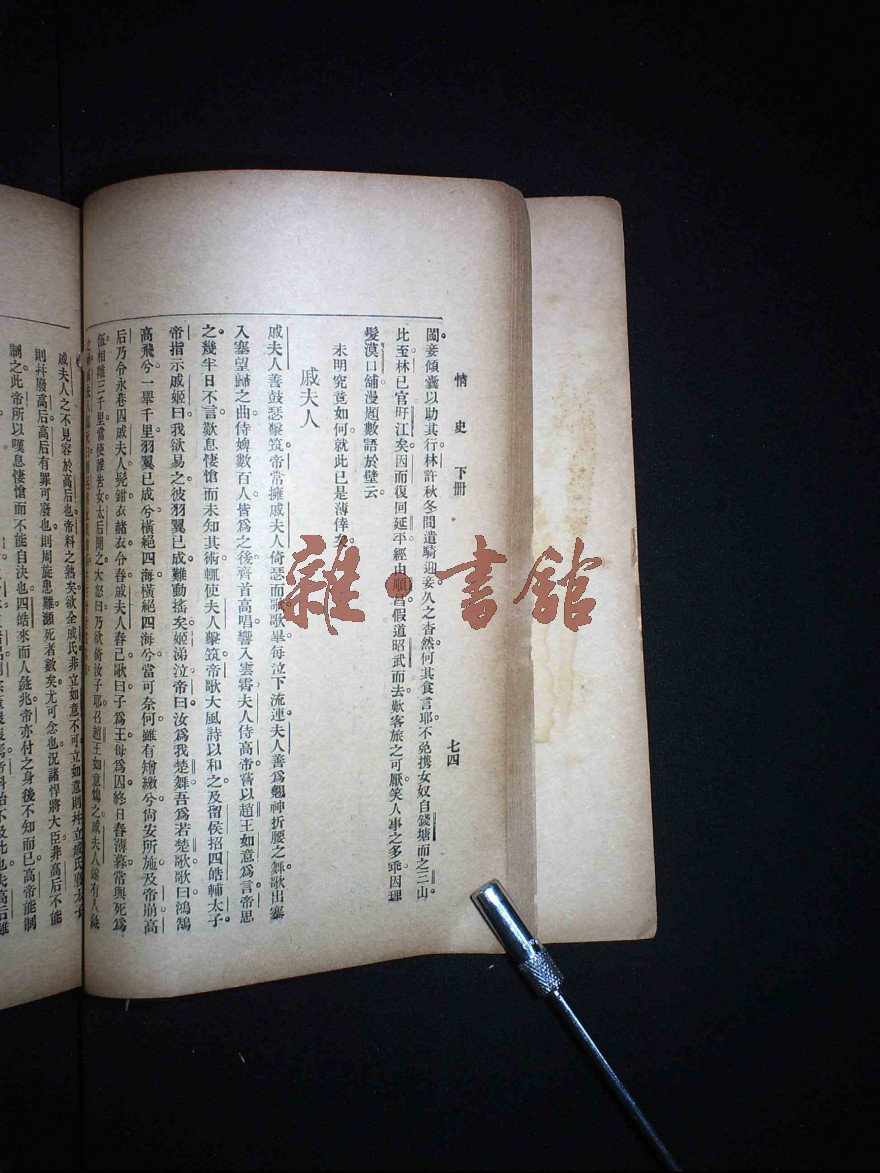 情史 下冊 七四
閩妾傾囊以助其行林許秋冬間遣騎迎妾久之杳然何其食言耶不免携女奴自錢塘而之三山
比至林已官盱江矣因而復回延平經由順昌假道昭武而去歎客旅之可厭笑人事之多乖因理
髮漠口舖漫題數語於壁云
未明究竟如何就此已是薄倖矣
戚夫人
戚夫人善鼓瑟擊筑帝常擁戚夫人倚瑟而歌歌畢每泣下流連夫人善爲翹袖折腰之舞歌出塞
入塞望歸之曲侍婢數百人皆爲之後齊首高唱響入雲霄夫人侍高帝嘗以趙王如意爲言帝思
之幾半日不言歎息悽愴而未知其術輒使夫人擊筑帝歌大風詩以和之及留侯招四皓輔太子
帝指示戚姬曰我欲易之彼羽翼已成難動搖矣姬涕泣帝曰汝爲我楚舞吾爲若楚歌歌曰鴻鵠
高飛兮一舉千里羽翼已成兮橫絕四海橫絕四海兮當可奈何雖有矰繳兮尙安所施及帝崩高
后乃令永巷囚戚夫人髠鉗衣赭衣令舂戚夫人舂已歌曰子爲王母爲囚終日舂薄暮常與死爲
伍相離三千里當使誰告女太后聞之大怒曰乃欲倚汝子耶召趙王如意鴆之戚夫人遂有人彘
戚夫人之不見容於高后也帝料之熟矣欲全戚氏非立如意不可立如意則幷立戚氏廢太子
則幷廢高后高后有罪可廢也則周旋患難瀕死者數矣尤可念也況諸悍將大臣非高后不能
制之此帝所以嘆息悽愴而不能自決也四皓來而人彘兆帝亦付之身後不知而已高帝能制